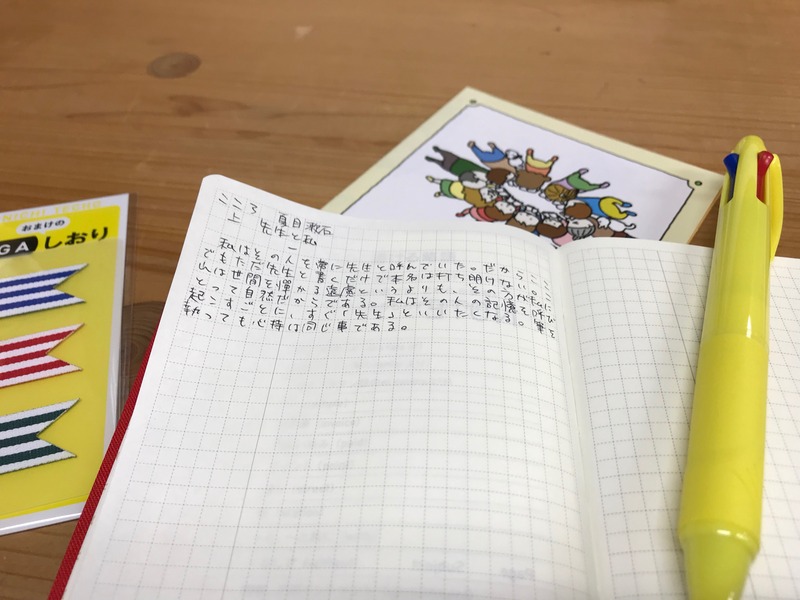 こころ　夏目漱石
上　先生と私
一
私はその人を常に先生と呼んでいた。だからここ
でもただ先生と書くだけで本名は打ち明けない。こ
れは世間を憚かる遠慮というよりも、その方が私に
とって自然だからである。私はその人の記憶を呼び
起すごとに、すぐ「先生」といいたくなる。筆を
執っても心持は同じ事である。
NICHI TECHO
おまけの
GA しおり